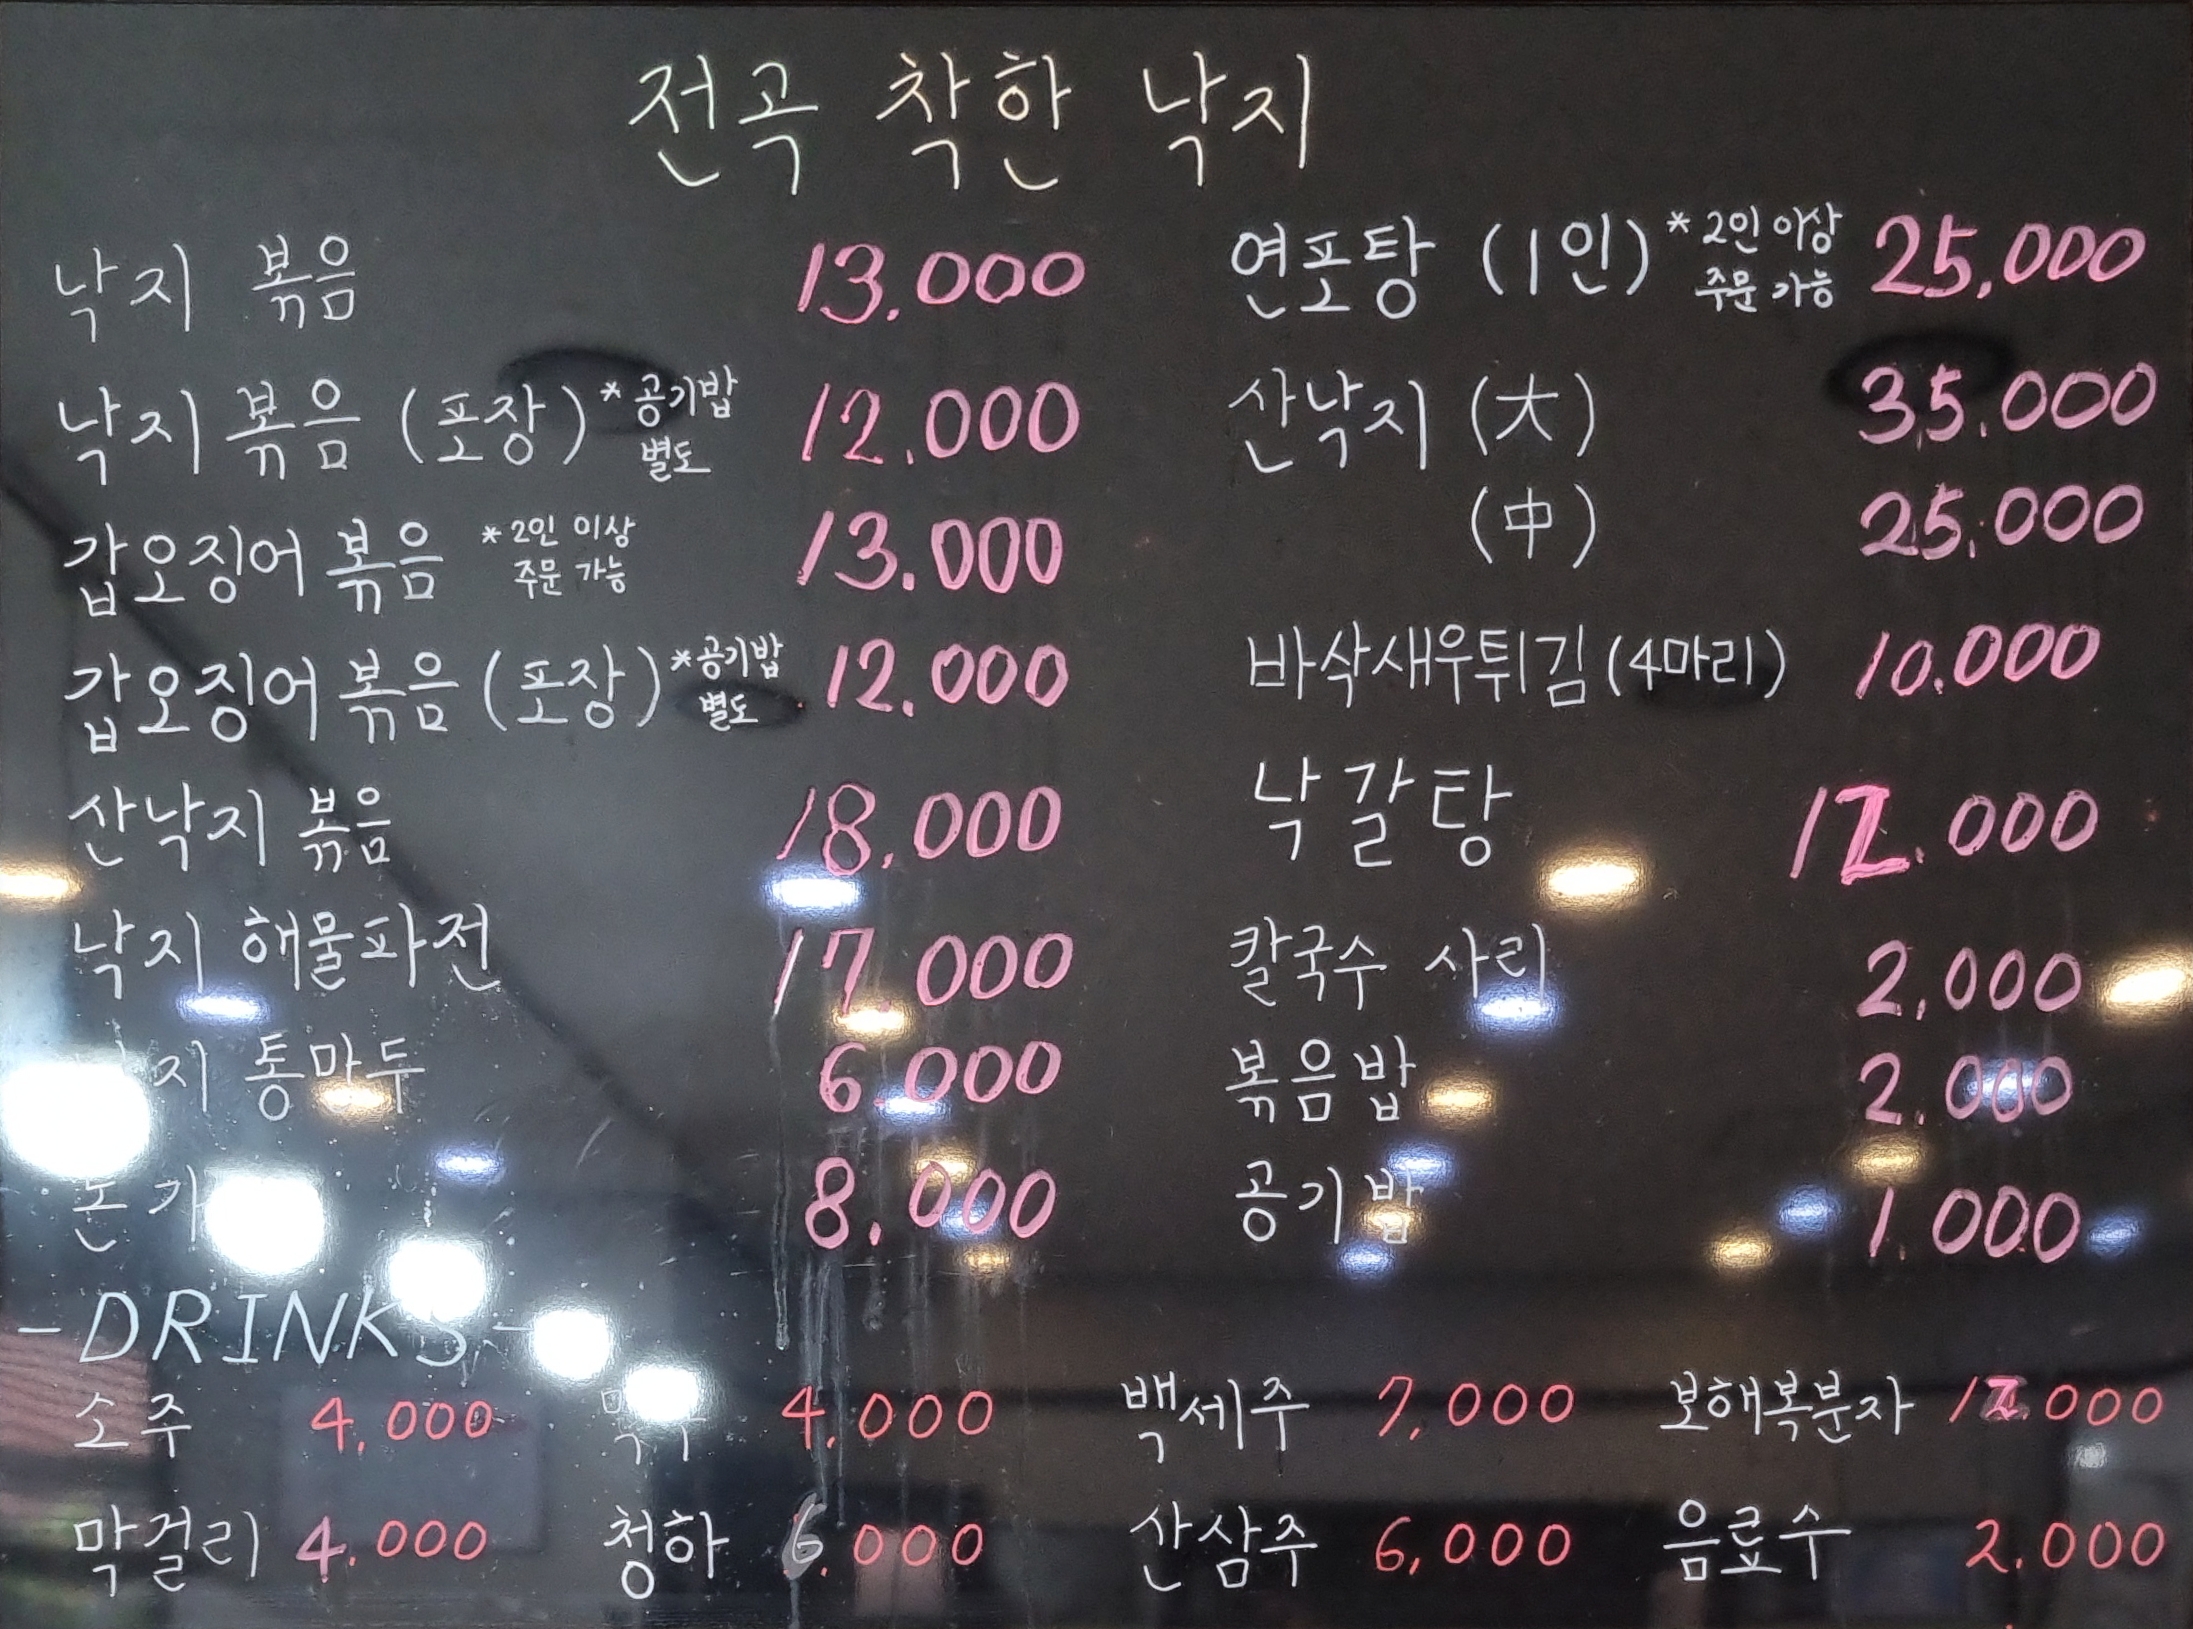 전곡 착한 낙지
낙지 볶음 13.000
낙지 볶음 (포장) *공기밥 별도 12.000
갑오징어 볶음 *2인 이상 주문 가능 13.000
갑오징어 볶음 (포장) *공기밥 별도 12.000
산낙지 볶음 18.000
낙지 해물파전 17.000
지 통만두 6.000
돈가 8.000
연포탕 (1인) *2인 이상 주문 가능 25.000
산낙지 (大) 35.000
(中) 25.000
바삭새우튀김 (4마리) 10.000
낙갈탕 12.000
칼국수 사리 2,000
볶음밥 2.000
공기밥 1.000
-DRINKS-
소주 4.000 4.000 백세주 7,000 보해복분자 12.000
막걸리 4.000 청하 6.000 산삼주 6,000 음료수 2.000